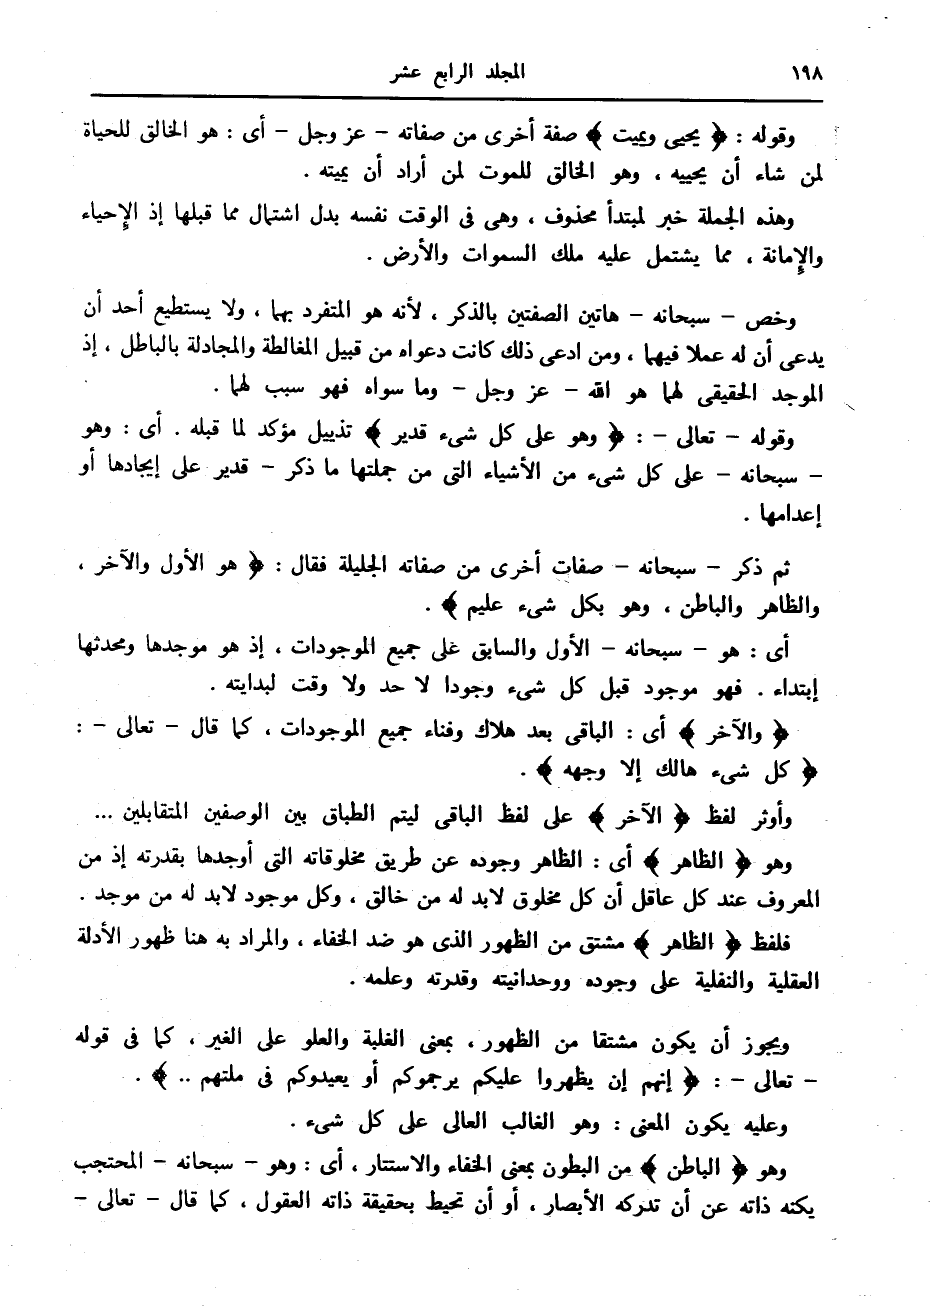 ١٩٨
المجلد الرابع عشر
وقوله : ﴿ يحيى ويميت ﴾ صفة أخرى من صفاته – عز وجل – أى : هو الخالق للحياة
لمن شاء أن يحييه ، وهو الخالق للموت لمن أراد أن يميته .
وهذه الجملة خبر لمبتدأ محذوف ، وهى فى الوقت نفسه بدل اشتمال مما قبلها إذ الإحياء
والإمانة ، مما يشتمل عليه ملك السموات والأرض .
وخص – سبحانه – هاتين الصفتين بالذكر ، لأنه هو المتفرد بهما ، ولا يستطيع أحد أن
يدعى أن له عملا فيهما ، ومن ادعى ذلك كانت دعواه من قبيل المغالطة والمجادلة بالباطل ، إذ
الموجد الحقيقى لهما هو الله – عز وجل – وما سواه فهو سبب لهما .
وقوله – تعالى – : ﴿ وهو على كل شىء قدير ﴾ تذييل مؤكد لما قبله . أى : وهو
– سبحانه – على كل شىء من الأشياء التى من جملتها ما ذكر – قدير على إيجادها أو
إعدامها .
ثم ذكر – سبحانه – صفات أخرى من صفاته الجليلة فقال : ﴿ هو الأول والآخر ،
والظاهر والباطن ، وهو بكل شىء عليم ﴾ .
أى : هو – سبحانه – الأول والسابق على جميع الموجودات ، إذ هو موجدها ومحدثها
إبتداء . فهو موجود قبل كل شىء وجودا لا حد ولا وقت لبدايته .
﴿ والآخر ﴾ أى : الباقى بعد هلاك وفناء جميع الموجودات ، كما قال – تعالى – :
﴿ كل شىء هالك إلا وجهه ﴾ .
وأوثر لفظ ﴿ الآخر ﴾ على لفظ الباقى ليتم الطباق بين الوصفين المتقابلين ...
وهو ﴿ الظاهر ﴾ أى : الظاهر وجوده عن طريق مخلوقاته التى أوجدها بقدرته إذ من
المعروف عند كل عاقل أن كل مخلوق لابد له من خالق ، وكل موجود لابد له من موجد .
فلفظ ﴿ الظاهر ﴾ مشتق من الظهور الذى هو ضد الخفاء ، والمراد به هنا ظهور الأدلة
العقلية والنقلية على وجوده ووحدانيته وقدرته وعلمه .
ويجوز أن يكون مشتقا من الظهور ، بمعنى الغلبة والعلو على الغير ، كما فى قوله
– تعالى – : ﴿ إنهم إن يظهروا عليكم يرجموكم أو يعيدوكم فى ملتهم .. ﴾ .
وعليه يكون المعنى : وهو الغالب العالى على كل شىء .
وهو ﴿ الباطن ﴾ من البطون بمعنى الخفاء والاستتار ، أى : وهو – سبحانه – المحتجب
بكنه ذاته عن أن تدركه الأبصار ، أو أن تحيط بحقيقة ذاته العقول ، كما قال – تعالى –